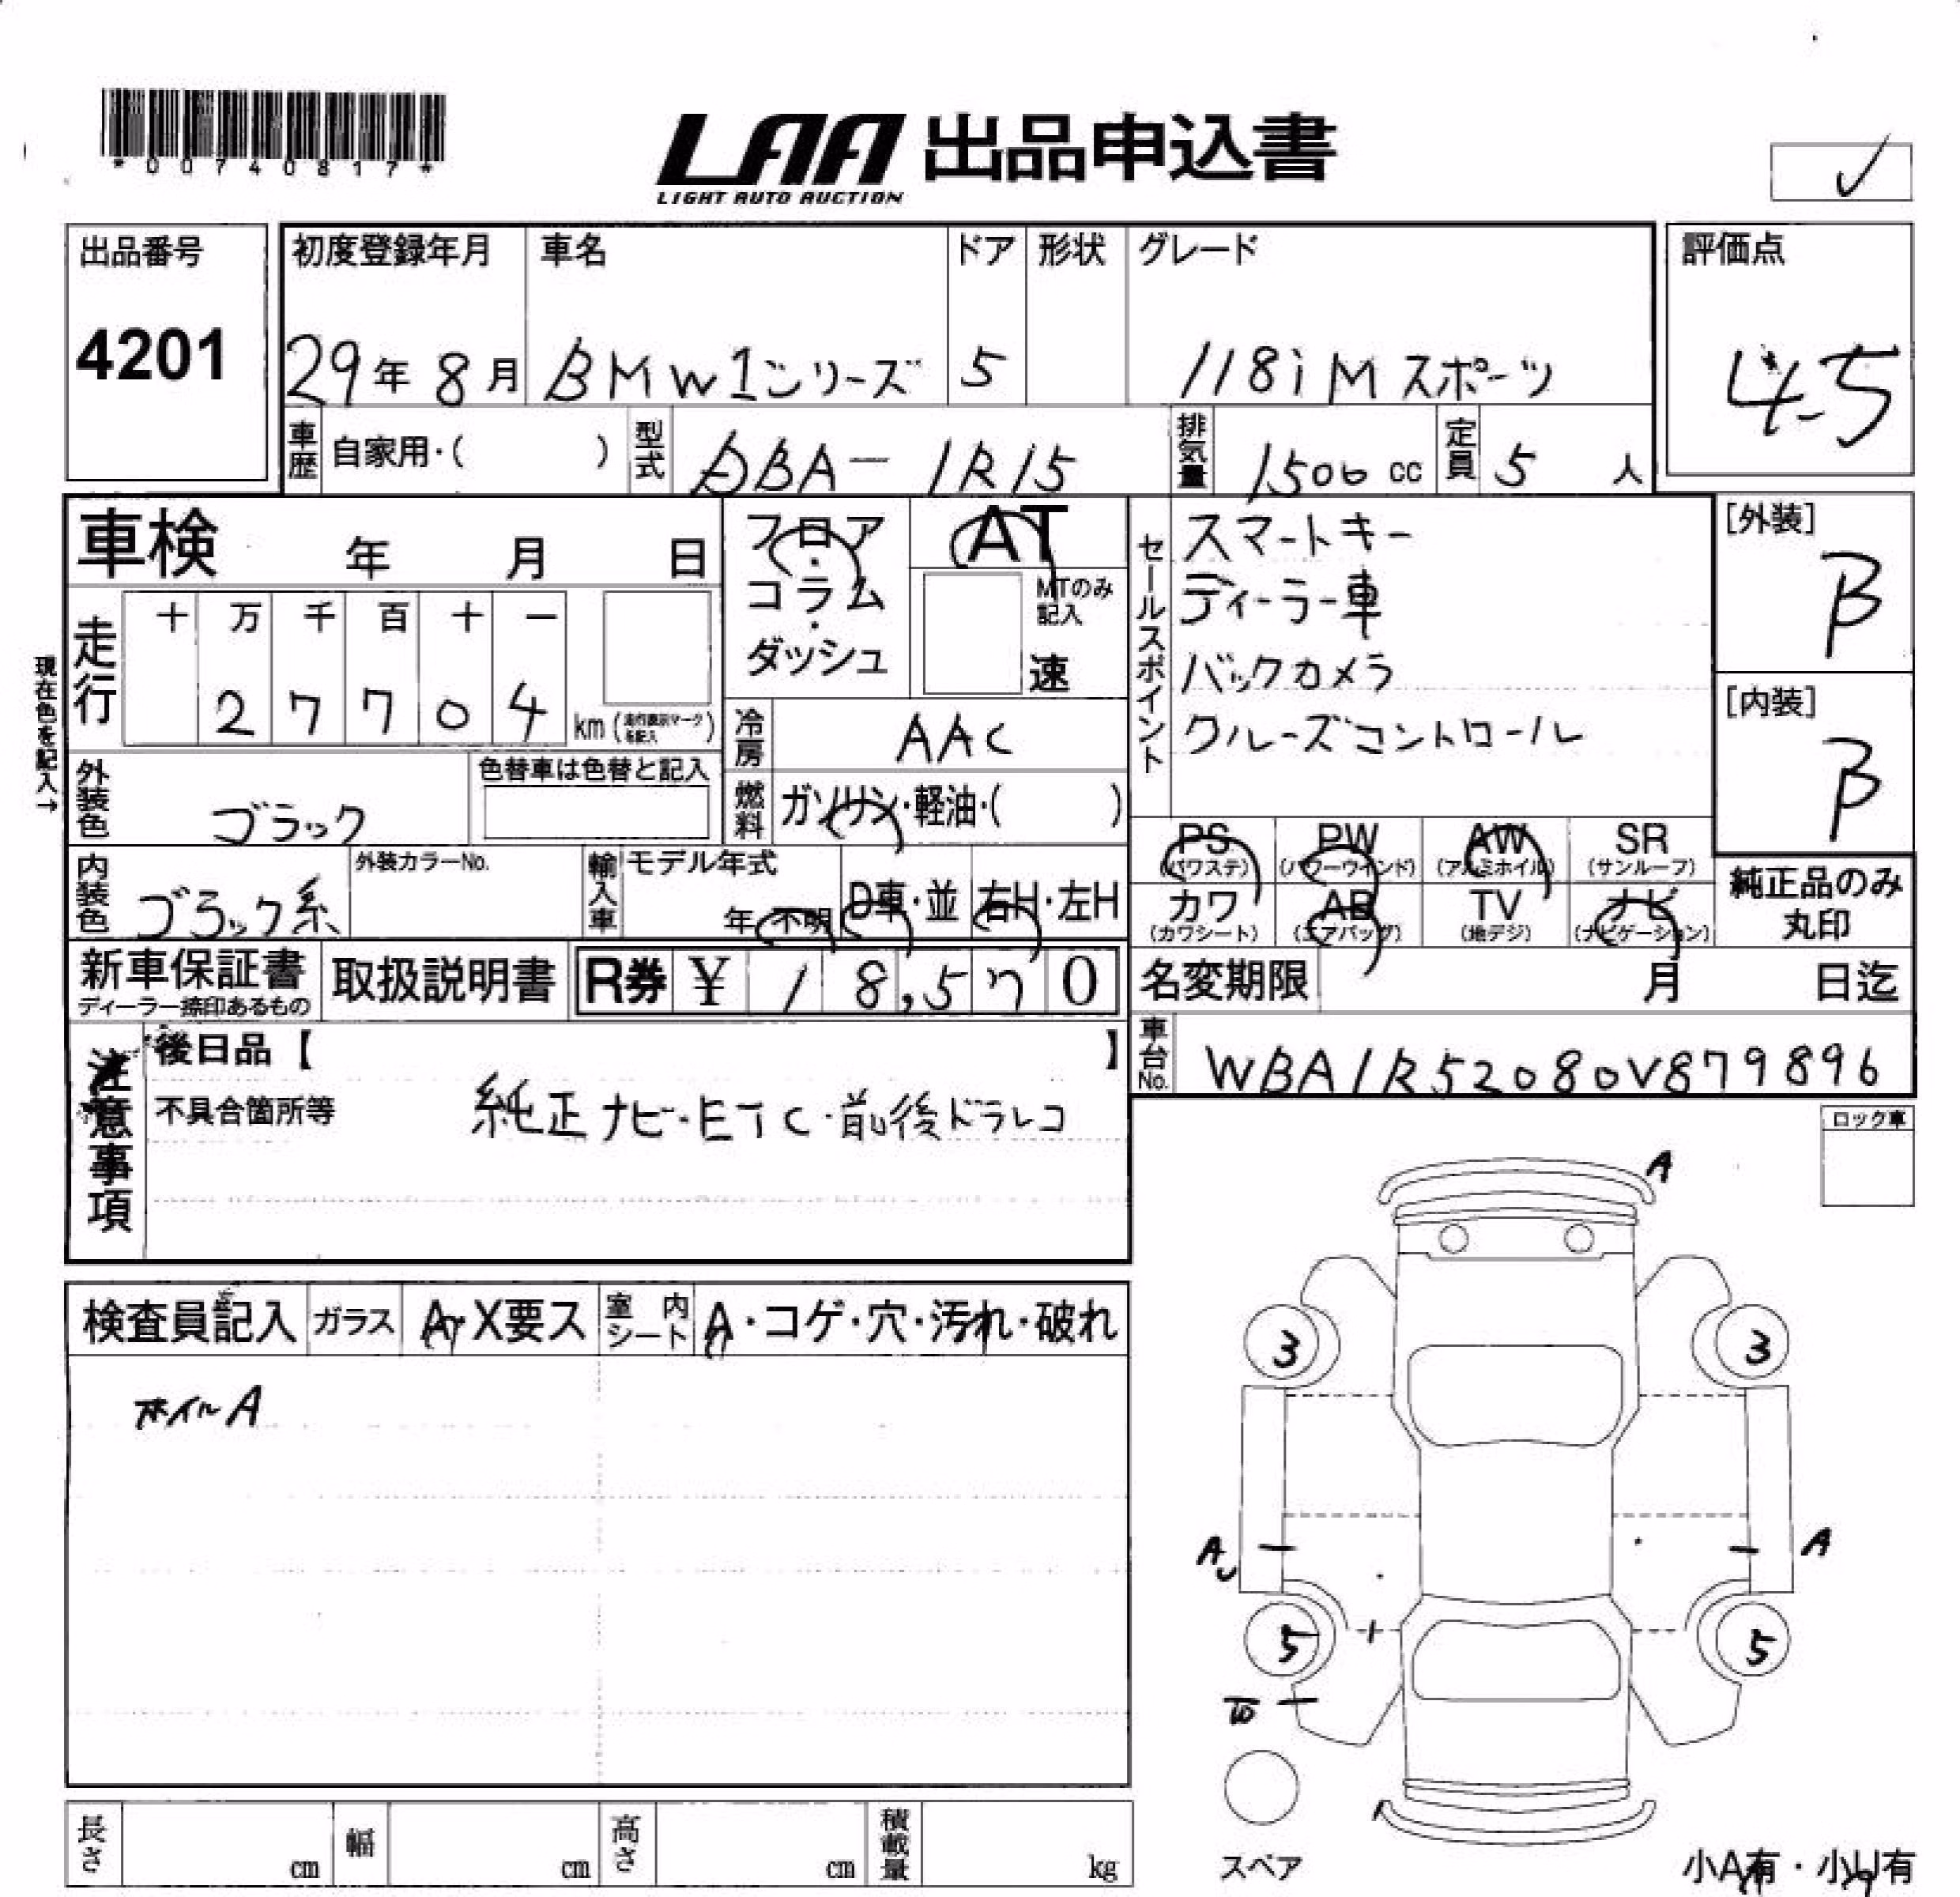 *00740817*
LAA 出品申込書
LIGHT AUTO AUCTION
出品番号
4201
初度登録年月 車名 ドア 形状 グレード
29年 8月 BMW1シリーズ 5 118i Mスポーツ
評価点
4.5
車歴 自家用・( ) 型式 DBA-1R15 排気量 1500cc 定員 5人
車検 年 月 日
フロア・コラム・ダッシュ
AT
MTのみ記入
速
現在色を記入→
走行 十 万 千 百 十 一
2 7 7 0 4 km
冷房 AAC
外装色 ブラック
色替車は色替と記入
燃料 ガソリン・軽油・( )
内装色 ブラック系
外装カラーNo.
輸入車 モデル年式
年 不明 D車・並 右H・左H
セールスポイント
スマートキー
ディーラー車
バックカメラ
クルーズコントロール
[外装]
B
[内装]
B
PS PW AW SR
(パワステ) (パワーウインド) (アルミホイル) (サンルーフ)
カワ AB TV ナビ
(カワシート) (エアバッグ) (地デジ) (ナビゲーション)
純正品のみ
丸印
新車保証書
ディーラー捺印あるもの
取扱説明書 R券 ¥ 18,570
名変期限 月 日迄
車台No. WBA1R52080V879896
注意事項
後日品【 】
不具合箇所等 純正ナビ・ETC・前後ドラレコ
ロック車
検査員記入 ガラス A・X要ス 室内シート A・コゲ・穴・汚れ・破れ
ホイルA
A
3 3
A A
5 5
スペア
小A有・小U有
長さ cm 幅 cm 高さ cm 積載量 kg